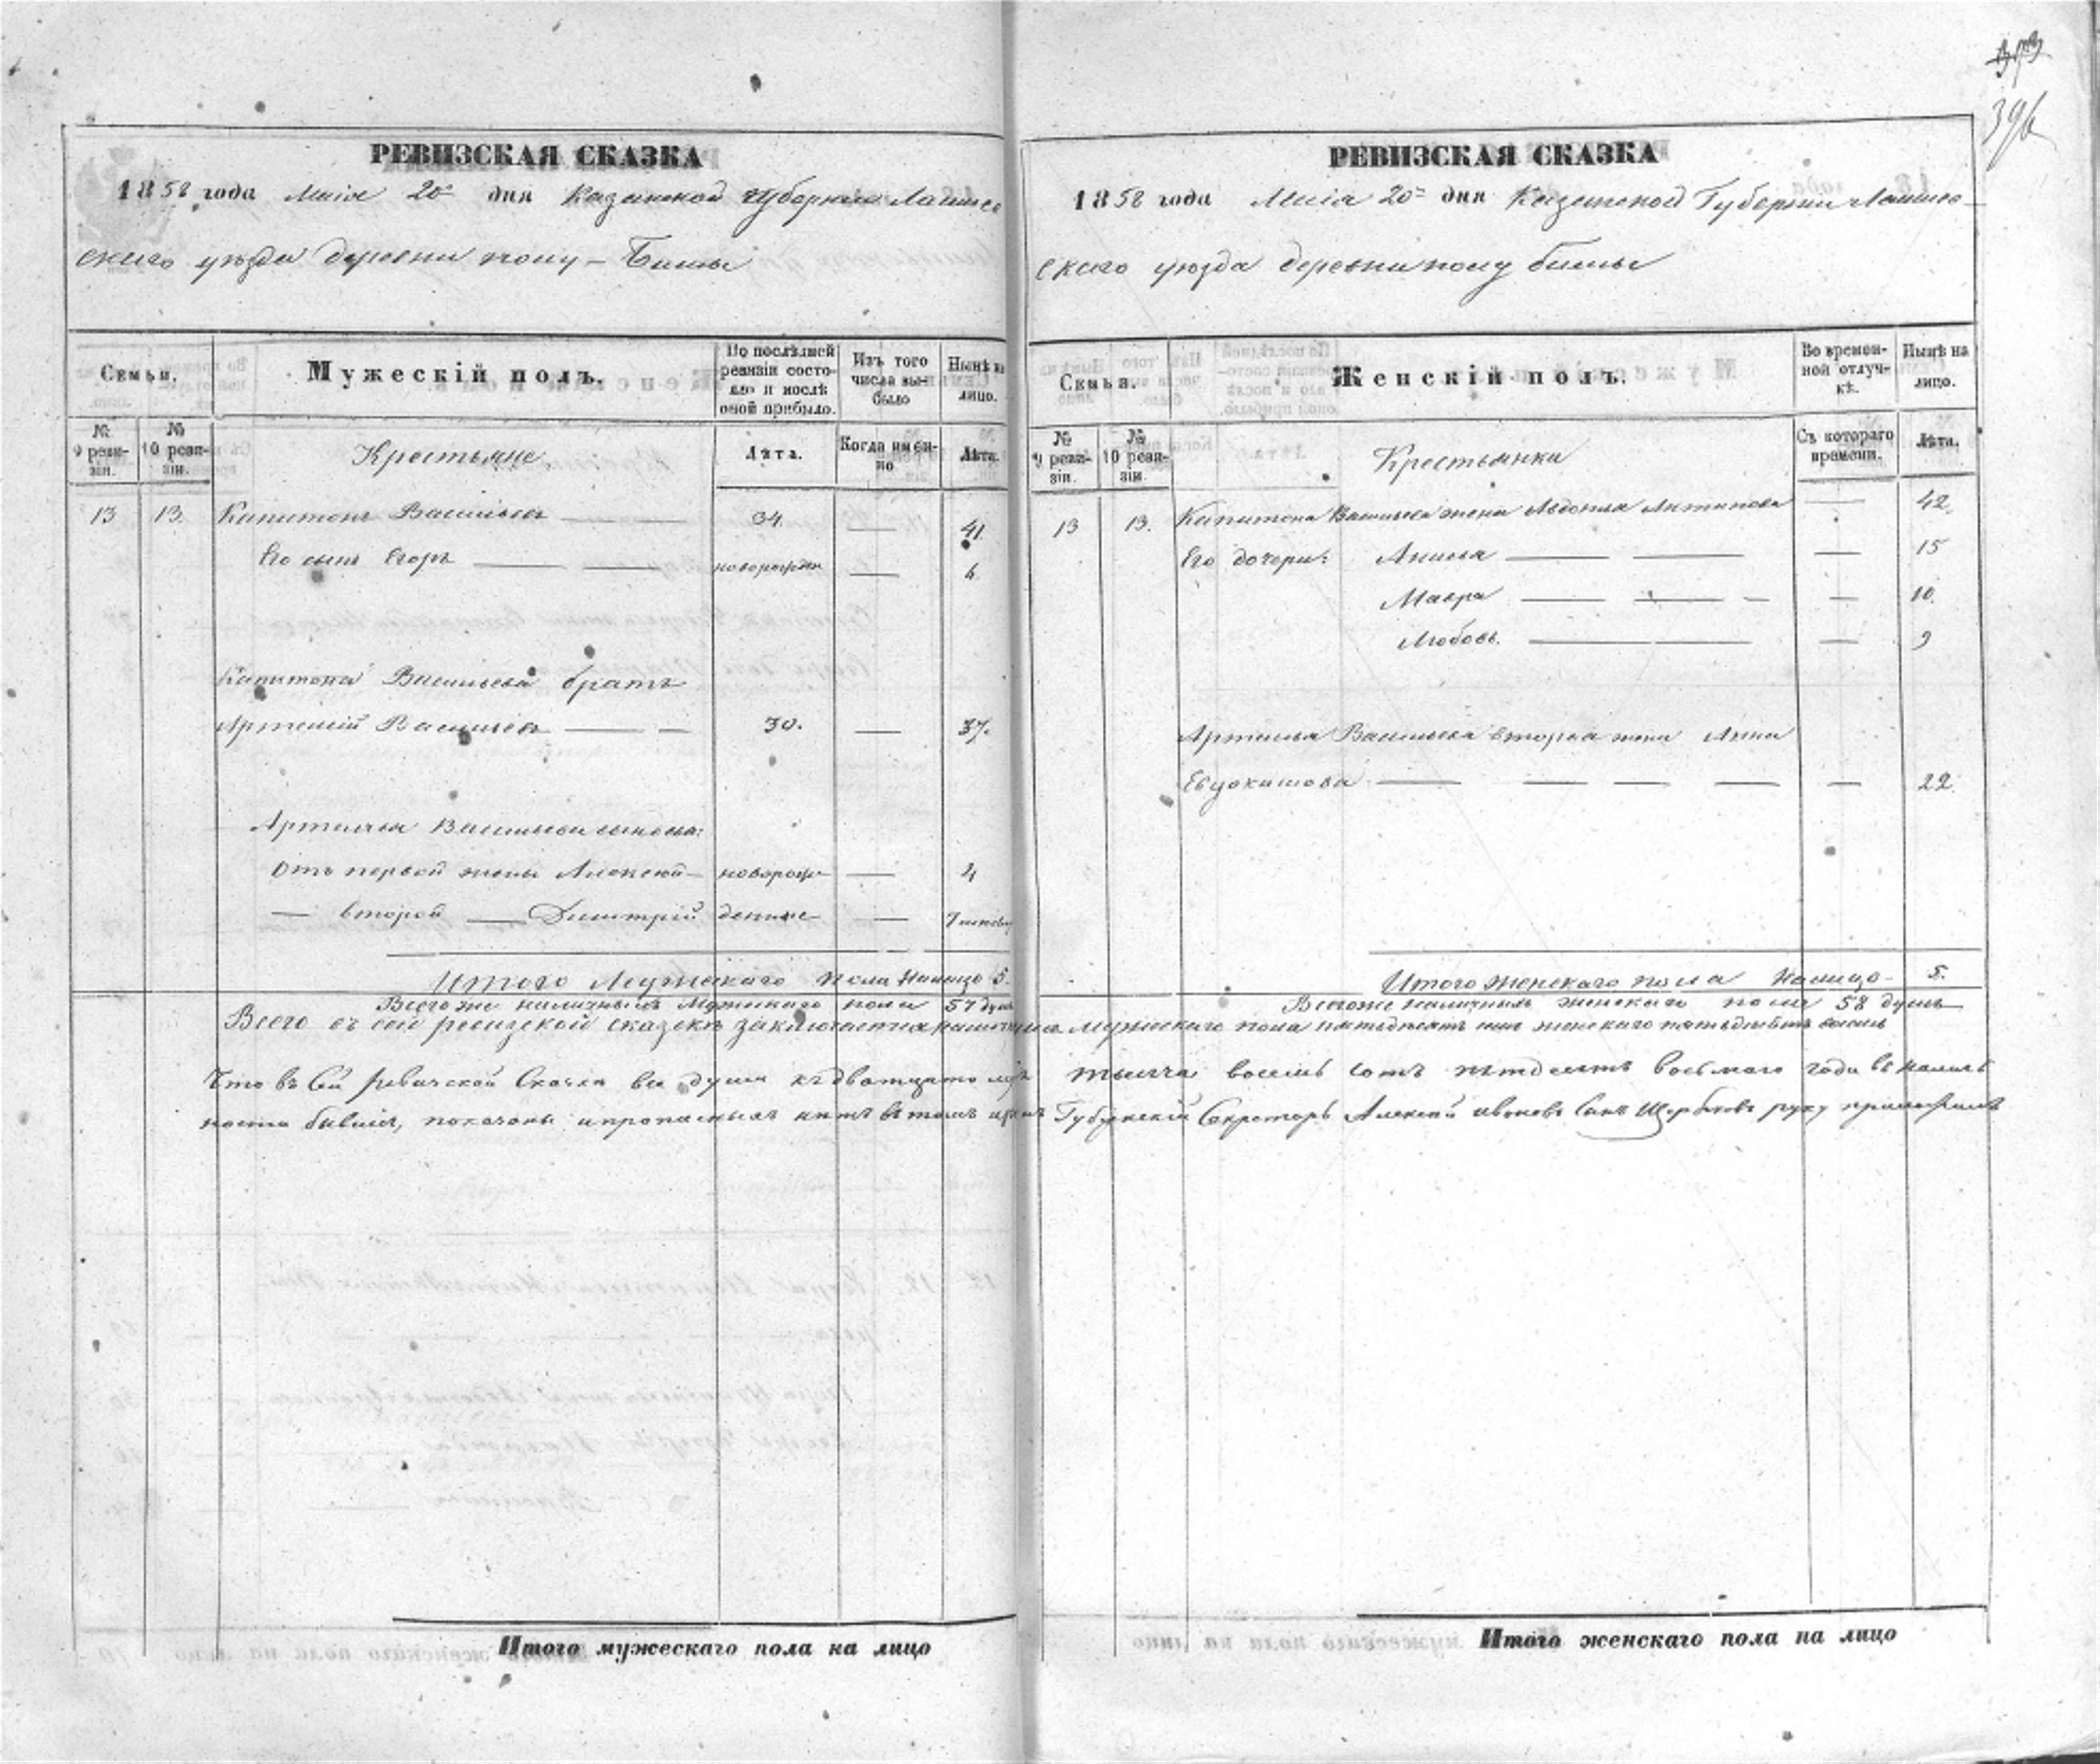 373
396
РЕВИЗСКАЯ СКАЗКА
1858 года Маія 20 дня Казанской Губерніи Лаишев
скаго уѣзда деревни Пону-Бишы
Семьи.
Мужескій полъ.
По послѣдней ревизіи состояло и послѣ оной прибыло.
Изъ того числа выбыло
Нынѣ на лицо.
№ 9 ревизіи.
№ 10 ревизіи.
Крестьяне
Лѣта.
Когда именно
Лѣта.
13 13. Капитонъ Васильевъ 34. 41.
Его сынъ Егоръ новорожден 6
Капитона Васильева братъ
Артемій Васильевъ 30. 37.
Артемья Васильева сыновья:
Отъ первой жены Алексей новорож 4
второй Димитрій денные
Итого Мужскаго пола налицо 5.
Всего же наличныхъ Мужескаго пола 57 душъ
РЕВИЗСКАЯ СКАЗКА
1858 года Маія 20 дня Казанской Губерніи Лаишев
скаго уѣзда деревни Пону бишы
Семьи.
Женскій полъ.
Во временной отлучкѣ.
Нынѣ на лицо.
№ 9 ревизіи.
№ 10 ревизіи.
Крестьянки
Съ котораго времени.
Лѣта.
13 13. Капитона Васильева жена Авдотья Антипова 42.
Его дочери: Анисья 15
Мавра 10.
Любовь. 9
Артемья Васильева вторая жена Анна
Евдокимова 22.
Итого женскаго пола налицо 5.
Всего же наличныхъ женскаго пола 58 душъ
Всего въ сей ревизской сказкѣ заключается мужескаго пола пятьдесятъ семь женскаго пятьдесятъ восемь
Что въ сей ревизской сказки все души тысяча восемь сотъ пятдесятъ восьмаго года въ налич
ности бывшія, показаны и прописныхъ нетъ въ томъ Губернскій Секретарь Алексей Ивановъ Сынъ Щербаковъ руку приложилъ
Итого мужескаго пола на лицо
Итого женскаго пола на лицо